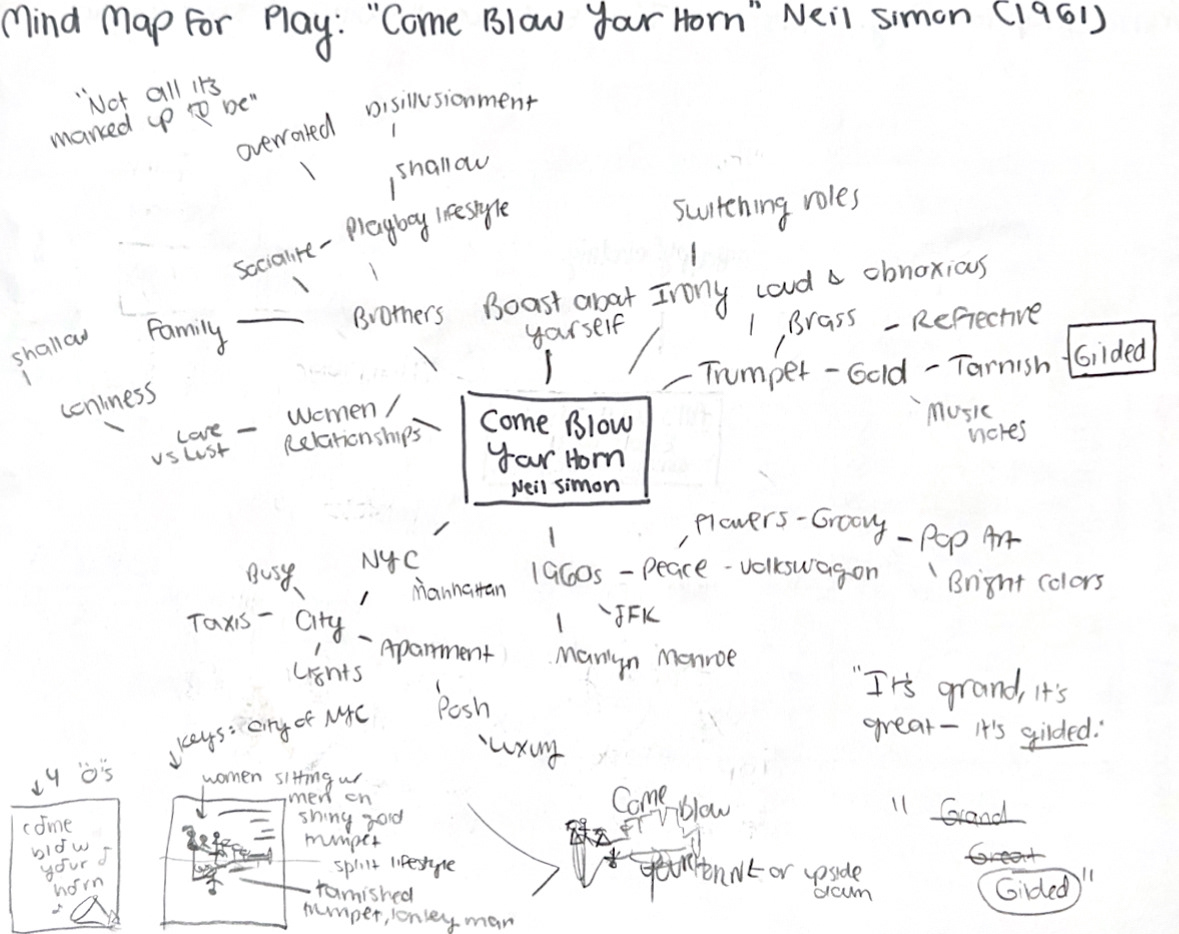 Mind Map For Play: "Come Blow Your Horn" Neil Simon (1961)
"Not all it's
marked up to be"
overrated
Disillusionment
shallow
Playboy lifestyle
Socialite
Family
Brothers
shallow
Lonliness
Love
vs Lust
Women /
Relationships
Boast about
yourself
Switching roles
Irony
Loud & obnoxious
Brass
Reflective
Trumpet - Gold - Tarnish
Gilded
Music
notes
Come Blow
Your Horn
Neil Simon
NYC
Manhattan
Busy
Taxis
City
Lights
Apartment
Posh
Luxury
1960s - Peace - Volkswagon
Flowers - Groovy
Pop Art
Bright colors
JFK
Marilyn Monroe
"It's grand, it's
great - it's gilded."
4 "O"s
come
blow
your
horn
Keys: City of NYC
women sitting w
men on
shiny gold
trumpet
split lifestyle
tarnished
trumpet, lonley man
Come Blow
or upside
down
" Grand
Great
Gilded "